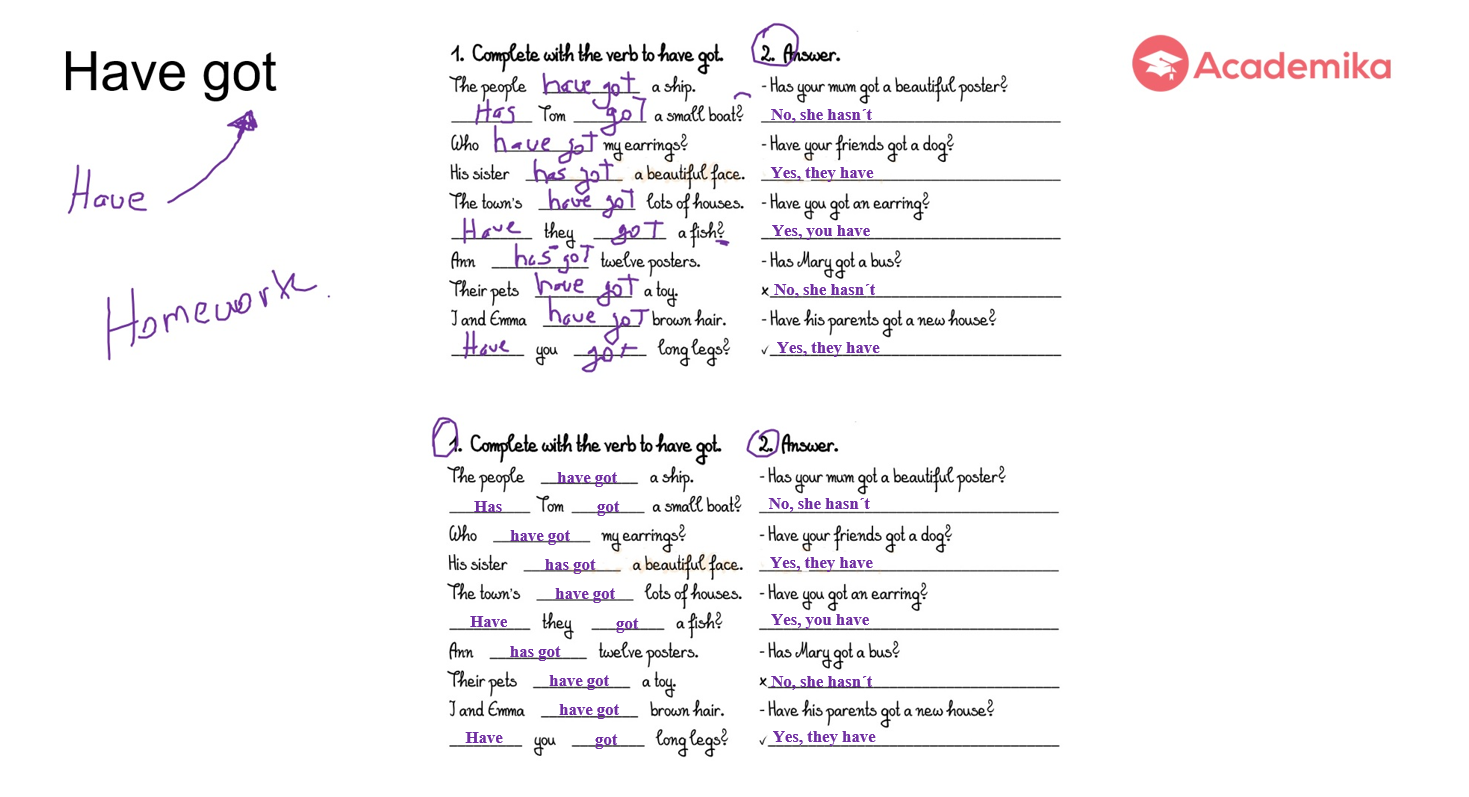 Have got
Have
Homework
Academika
1. Complete with the verb to have got.
The people have got a ship.
Has Tom got a small boat?
Who have got my earrings?
His sister has got a beautiful face.
The town's have got lots of houses.
Have they got a fish?
Ann has got twelve posters.
Their pets have got a toy.
I and Emma have got brown hair.
Have you got long legs?
2. Answer.
- Has your mum got a beautiful poster?
No, she hasn´t
- Have your friends got a dog?
Yes, they have
- Have you got an earring?
Yes, you have
- Has Mary got a bus?
x No, she hasn´t
- Have his parents got a new house?
✓ Yes, they have
1. Complete with the verb to have got.
The people have got a ship.
Has Tom got a small boat?
Who have got my earrings?
His sister has got a beautiful face.
The town's have got lots of houses.
Have they got a fish?
Ann has got twelve posters.
Their pets have got a toy.
I and Emma have got brown hair.
Have you got long legs?
2. Answer.
- Has your mum got a beautiful poster?
No, she hasn´t
- Have your friends got a dog?
Yes, they have
- Have you got an earring?
Yes, you have
- Has Mary got a bus?
x No, she hasn´t
- Have his parents got a new house?
✓ Yes, they have